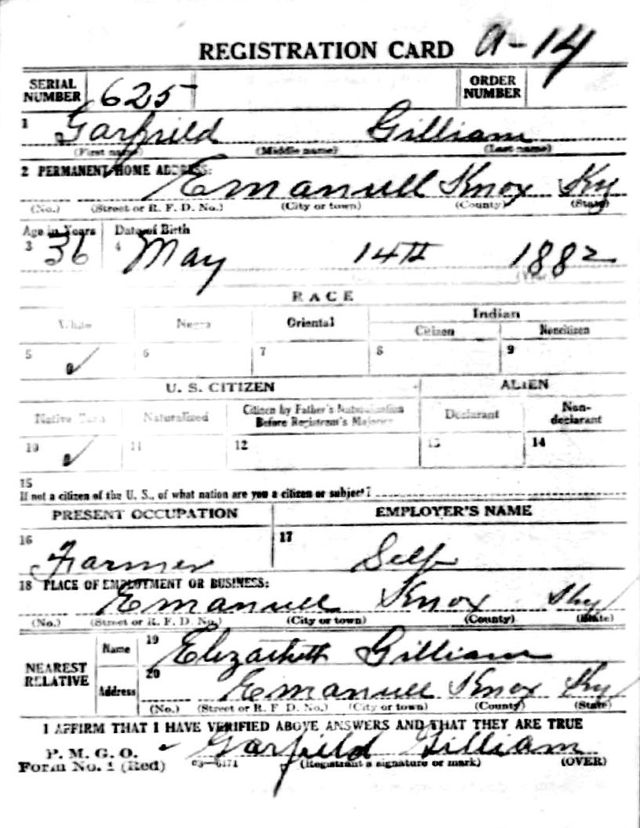 REGISTRATION CARD A-14
SERIAL NUMBER 625 ORDER NUMBER
1 Garfield Gilliam
(First name) (Middle name) (Last name)
2 PERMANENT HOME ADDRESS:
Emanuell Knox Ky
(No.) (Street or R. F. D. No.) (City or town) (County) (State)
Age in Years Date of Birth
3 36 4 May 14th 1882
RACE
White Negro Oriental Indian
Citizen Noncitizen
5 ✓ 6 7 8 9
U. S. CITIZEN ALIEN
Native Born Naturalized Citizen by Father's Naturalization Before Registrant's Majority Declarant Non-declarant
10 ✓ 11 12 13 14
15
If not a citizen of the U. S., of what nation are you a citizen or subject?
PRESENT OCCUPATION EMPLOYER'S NAME
16 Farmer 17 Self
18 PLACE OF EMPLOYMENT OR BUSINESS:
Emanuell Knox Ky
(No.) (Street or R. F. D. No.) (City or town) (County) (State)
NEAREST RELATIVE Name 19 Elizabeth Gilliam
Address 20 Emanuell Knox Ky
(No.) (Street or R. F. D. No.) (City or town) (County) (State)
I AFFIRM THAT I HAVE VERIFIED ABOVE ANSWERS AND THAT THEY ARE TRUE
P. M. G. O. Garfield Gilliam
Form No. 1 (Red) 03-6171 (Registrant's signature or mark) (OVER)